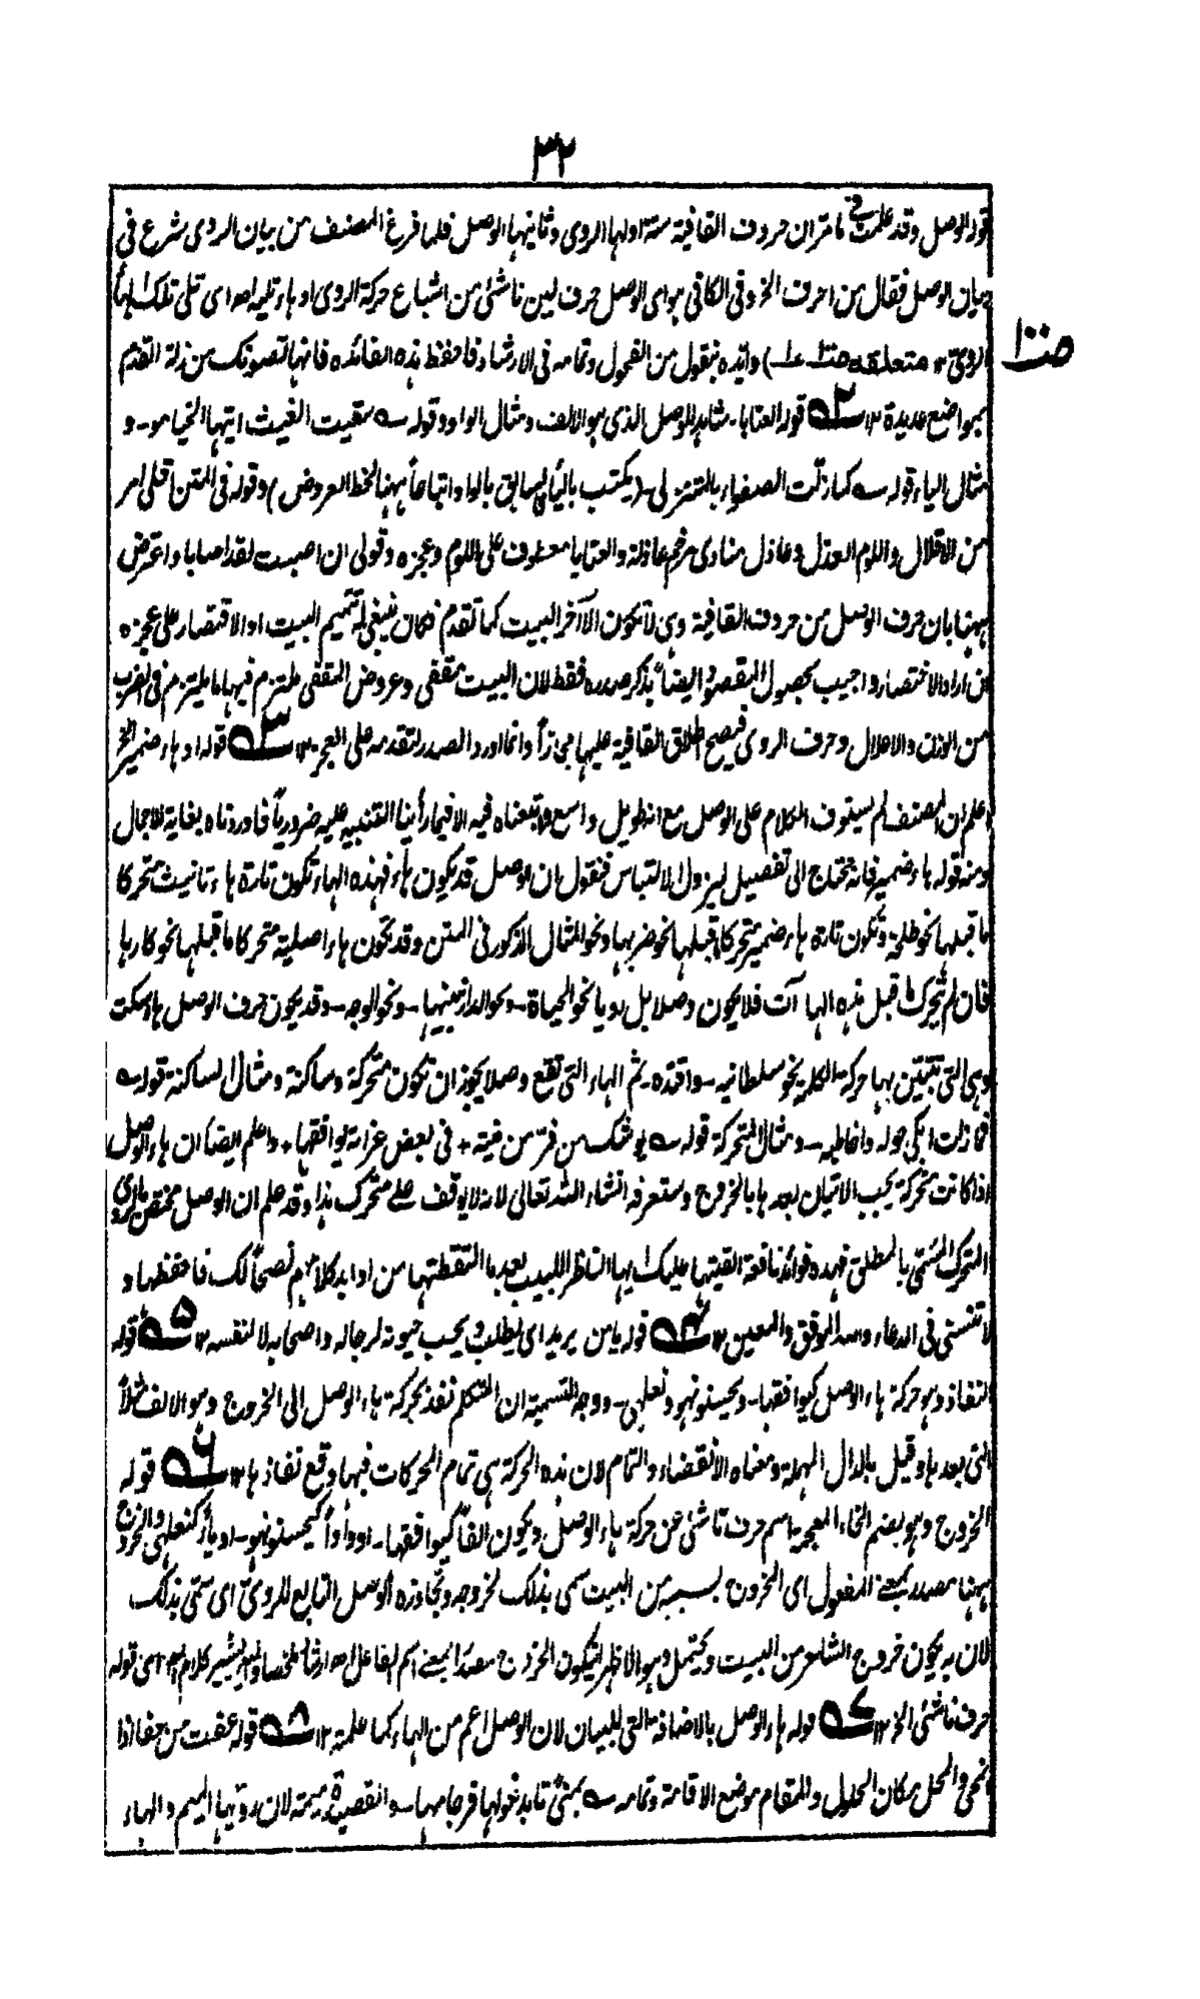 ٣٢
قوله الوصل وقد علمت فى ما مر ان حروف القافية ستة اولها الروى وثانيها الوصل فلما فرغ المصنف من بيان الروى شرع فى
بيان الوصل فقال من احرف الخ وفى الكافى هو اى الوصل حرف لين ناشئ من اشباع حركة الروى او هاء تليه اھ اى تلى تلك الهاء
الروىّ ١٢ متعلقه صنا عـ١ـه) وايده بنقول من الفحول وتمامه فى الارشاد فاحفظ هذه الفائده فانها تصونك من زلة القدم
صنـا
بمواضع عديدة ١٢ ٢ه قوله العتابا۔ مثال للوصل الذى هو الالف ومثال الواو وقوله ؎ سقيت الغيث ايتها الخيامو۔ و
مثال الياء قوله ؎ كما زلّت الصفواء بالمتنزلى ۔ (يكتب بالياء والسابق بالواو اتباعاً ههنا لخط العروض) وقوله فى المتن اقلى امر
من الاقلال واللوم العذل وعاذل منادى مرخم عاذلة والعتابا معطوف على اللوم وعجزه وقولى ان اصبت لقد اصابا واعترض
ههنا بان حرف الوصل من حروف القافية وهى لا تكون الا آخر البيت كما تقدم فكان ينبغى له تتميم البيت او الاقتصار على عجزه
ان اراد الاختصار واجيب بحصول المقصود ايضاً بذكر صدره فقط لان البيت مقفى وعروض المقفى ملتزم فيها ما يلتزم فى الضرب
من الوزن والاعلال وحرف الروى فيصح اطلاق القافية عليها مجازاً وانما اورد الصدر لتقدمه على العجز ١٢ ٣ه قوله او هاء ضمير الخ
اعلم ان المصنف لم يستوف الكلام على الوصل مع انه طويل واسع واتبعناه فيه الا فيما رأينا التنبيه عليه ضرورياً فاوردناه بغاية الاجمال
ومنه قوله هاء ضمير فانه يحتاج الى تفصيل ليزول الالتباس فنقول ان الوصل قد يكون هاء فهذه الهاء تكون تارة هاء تانيث متحركا
ما قبلها نحو طلحة وتكون تارة هاء ضمير متحركا ما قبلها نحو ضربها ونحو المثال المذكور فى المتن وقد تكون هاء اصلية متحركا ما قبلها نحو كارها
فان لم يتحرك ما قبل هذه الهاآت فلا يكون وصلا بل رويا نحو الحياة۔ ونحو الدار نبنيها۔ ونحو الوجه۔ وقد يكون حرف الوصل هاء سكت
وهى التى تتبين بها حركة الكلمة نحو سلطانيه۔ واقتده۔ ثم الهاء التى تقع وصلا يجوز ان تكون متحركة وساكنة ومثال الساكنة قوله ؎
فما زلت ابكى حوله واخاطبه۔ ومثال المتحركة قوله ؎ يوشك من فرّ من منيته + فى بعض غراته يوافقها + واعلم ايضاً ان هاء الوصل
اذا كانت متحركة يجب الاتيان بعدها بالخروج وستعرفه انشاء الله تعالى لانه لا يوقف على متحرك هذا وقد علم ان الوصل مختص بالروى
المتحرك المسمى بالمطلق فهذه فوائد نافعة القيتها عليك ايها الناظر اللبيب بعد ما التقطتها من اوابد كلامهم نصحاً لك فاحفظها و
لا تنسنى فى الدعاء والله الموفق والمعين ١٢ ٤ه قوله يا من يريد اى يطلب ويحب حيوته لرجاله واصحابه لا لنفسه ١٢ ٥ه قوله
النفاذ وهو حركة هاء الوصل كيوافقها۔ ويحسنونهو ونعلهى۔ ووجه التسمية ان المتكلم نفذ بحركة هاء الوصل الى الخروج وهو الالف مثلاً
التى بعدها وقيل بالدال المهملة ومعناه الانقضاء والتمام لان هذه الحركة هى تمام الحركات فبها وقع نفاذها ١٢ ٦ه قوله
الخروج وهو بضم الخاء المعجمة اسم حرف ناشئ عن حركة هاء الوصل ويكون الفاً كيوافقها۔ او واواً كيحسنونهو۔ او ياءً كنعلهى والخروج
ههنا مصدر بمعنى المفعول اى المخرون بسببه من البيت سمى بذلك لخروجه وتجاوزه الوصل التابع للروىّ اى سمّى بذلك
لان به يكون خروج الشاعر من البيت ويحتمل وهو الاظهر ليكون الخروج مصدرا بمعنى اسم الفاعل اھ ارشاد ملخصا واليه يشير كلام المص اعنى قوله
حرف ناشئ الخ ١٢ ٧ه قوله هاء الوصل بالاضافة التى للبيان لان الوصل اعم من الهاء كما علمت ١٢ ٨ه قوله عفت من عفا اذا
انمحى والمحل مكان الحلول والمقام موضع الاقامة وتمامه ؎ بمنىً تابد غولها فرجامها۔ والقصيدة ميمية لان رويّها الميم والهاء